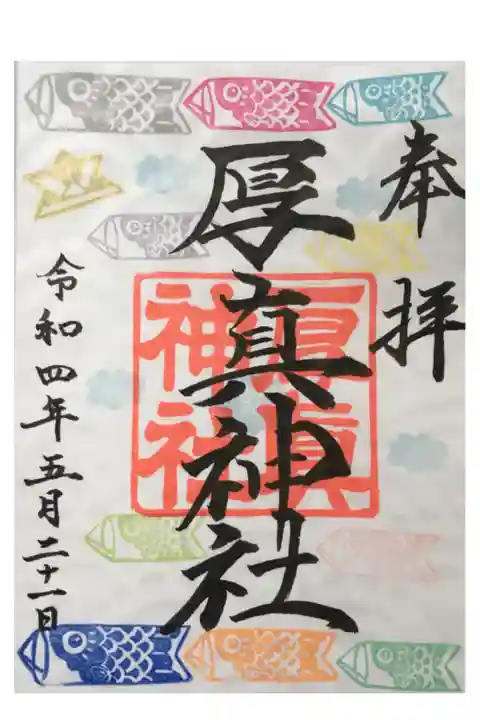 奉拝
厚真神社
厚真神社
令和四年五月二十一日